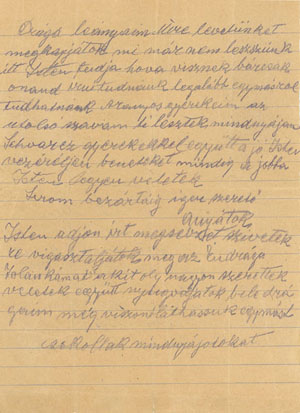 Drága leányaim Mire levelünket
megkapjátok mi már nem leszünk
itt Isten tudja hova visznek bárcsak
onand tudnank legalább egymásrol
tudhatnank Aranyos gyerekeim az
utolso szavam ti lesztek mindnyájan
Schvarcz gyerekekkel együtt a jó Isten
vezéreljen benneteket mindég a jobba
Isten legyen veletek
Sirom bezártáig igaz szerető
Anyátok
Isten adjon irt megsebzett szivetek
re vigasztaljátok meg az én drága
Jolánkámat akit oly nagyon szerettek
veletek együtt nyugodjatok bele drá
gaim még viszontláthassuk egymást
csokollak mindnyájotokat